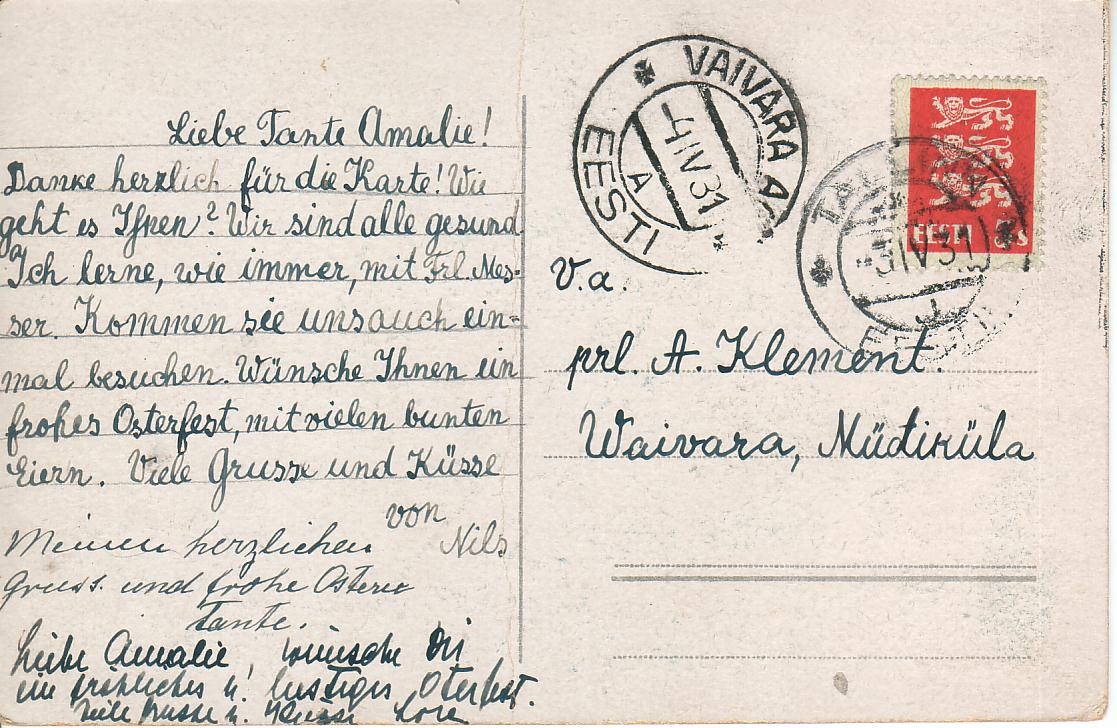 Liebe Tante Amalie!
Danke herzlich für die Karte! Wie
geht es Ihnen? Wir sind alle gesund
Ich lerne, wie immer, mit Frl. Mes-
ser. Kommen sie uns auch ein-
mal besuchen. Wünsche Ihnen ein
frohes Osterfest, mit vielen bunten
Eiern. Viele Grusse und Küsse
von
Nils
Meinen herzlichen
Gruss. und frohe Ostern
Tante.
Liebe Amalie, wünsche Dir
ein fröhliches u. lustiges Oterfest.
Viele Grüsse u. Küsse Lore
VAIVARA
4 IV 31
A
EESTI
TALLINN
3 IV 31
J
EESTI
EESTI 5 s
V. a.
prl. A. Klement.
Waivara, Müdiküla